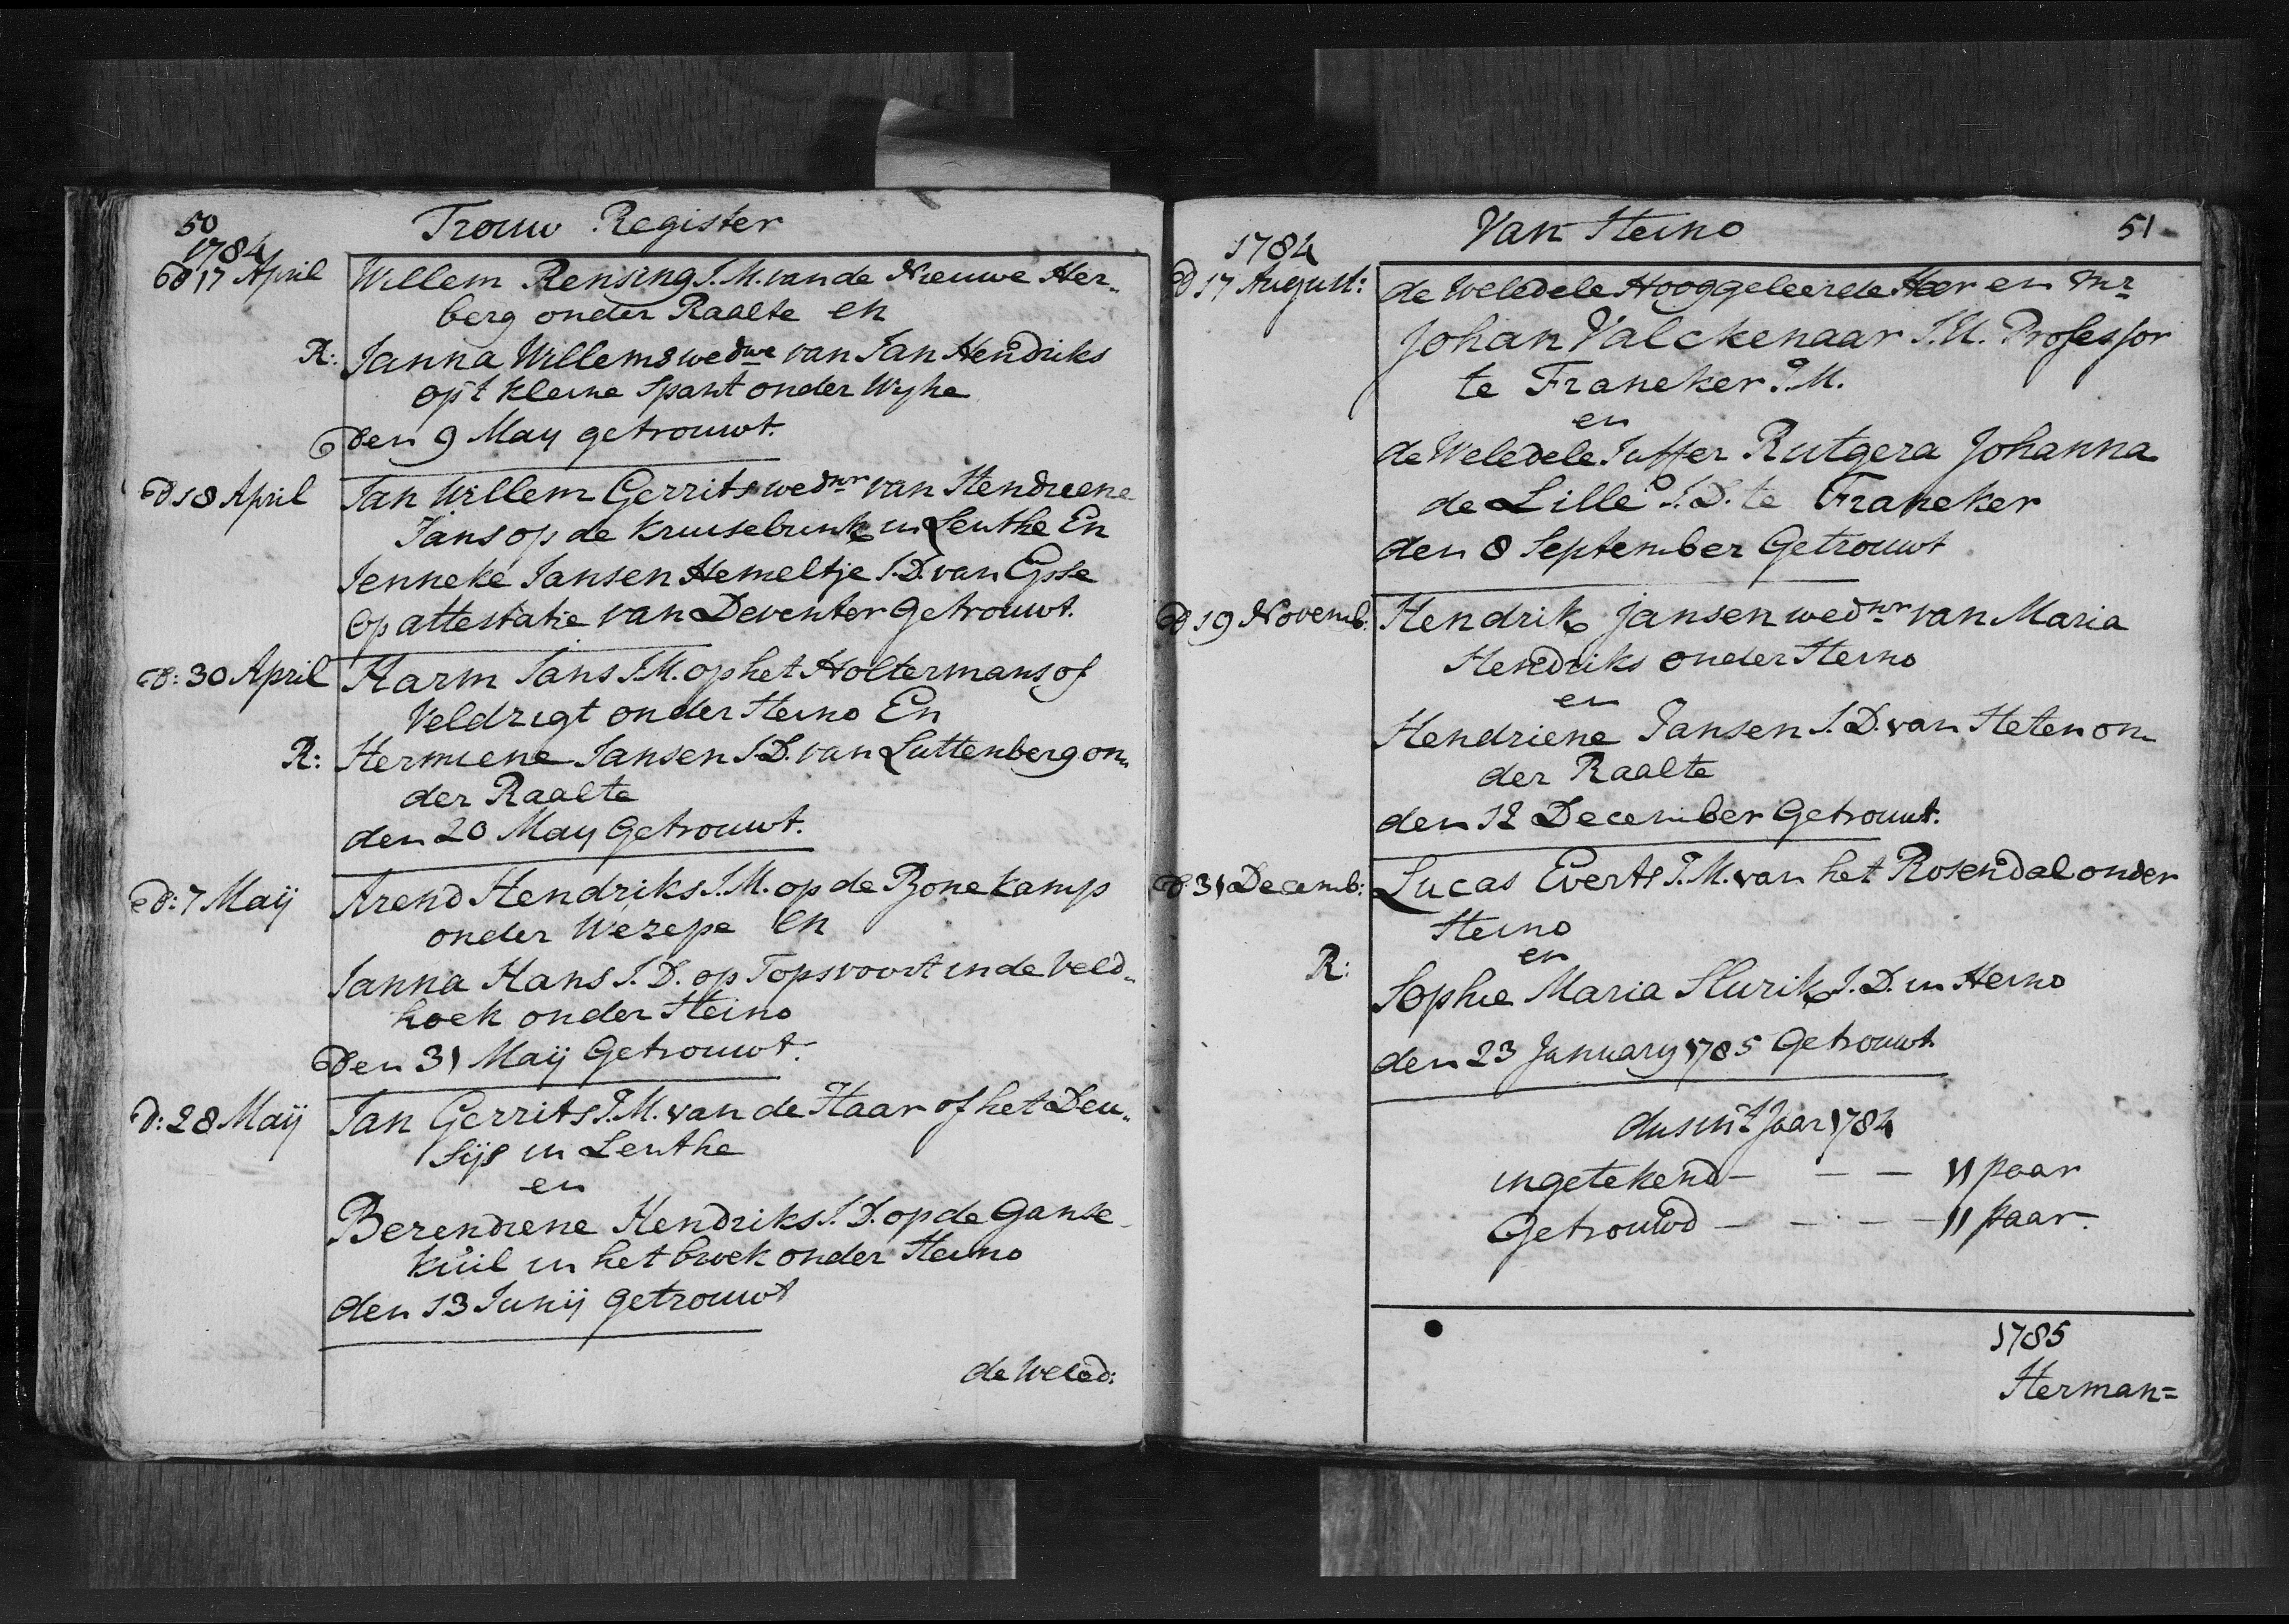 50
Trouw Register
1784
d 17 April
Willem Rensing J.M. van de Nieuwe Her„
berg onder Raalte en
R: Janna Willems wedwe van Jan Hendriks
op 't kleine Spant onder Wyhe
den 9 May getrouwt.
d 18 April
Jan Willem Gerrits wednr van Hendriene
Jans op de Kruisebrink in Lenthe En
Jenneke Jansen Hemeltje J.D. van Epse
op attestatie van Deventer getrouwt.
d: 30 April
Harm Jans J.M. op het Holtermans of
Veldzigt onder Heino En
R: Hermiene Jansen J.D. van Luttenberg on„
der Raalte
den 20 May Getrouwt.
d: 7 Maij
Arend Hendriks J.M. op de Bonekamp
onder Wezepe en
Janna Hans J.D. op Topsvoort in de Veld„
hoek onder Heino
den 31 Maij Getrouwt.
d: 28 Maij
Jan Gerrits J.M. van de Haar of het Deu„
sijs in Lenthe
en
Berendiene Hendriks J.D. op de Ganse
kuil in het broek onder Heino
den 13 Junij getrouwt
de Weled:
Van Heino
51
1784
d 17 August:
de Weledele Hooggeleerde Heer en Mr
Johan Valckenaar J.U. Professor
te Franeker J.M.
en
de Weledele Juffer Rutgera Johanna
de Lille J.D. te Franeker
den 8 September Getrouwt
d 19 Novemb:
Hendrik Jansen wednr van Maria
Hendriks onder Heino
en
Hendriene Jansen J.D. van Heten on„
der Raalte
den 12 December Getrouwt.
d: 31 Decemb:
Lucas Everts J.M. van het Rosendal onder
Heino
en
R:
Sophie Maria Slurik J.D. in Heino
den 23 January 1785 Getrouwt
dus in 't Jaar 1784
ingetekend — — — 11 paar
Getrouwd — — — 11 paar.
1785
Herman=